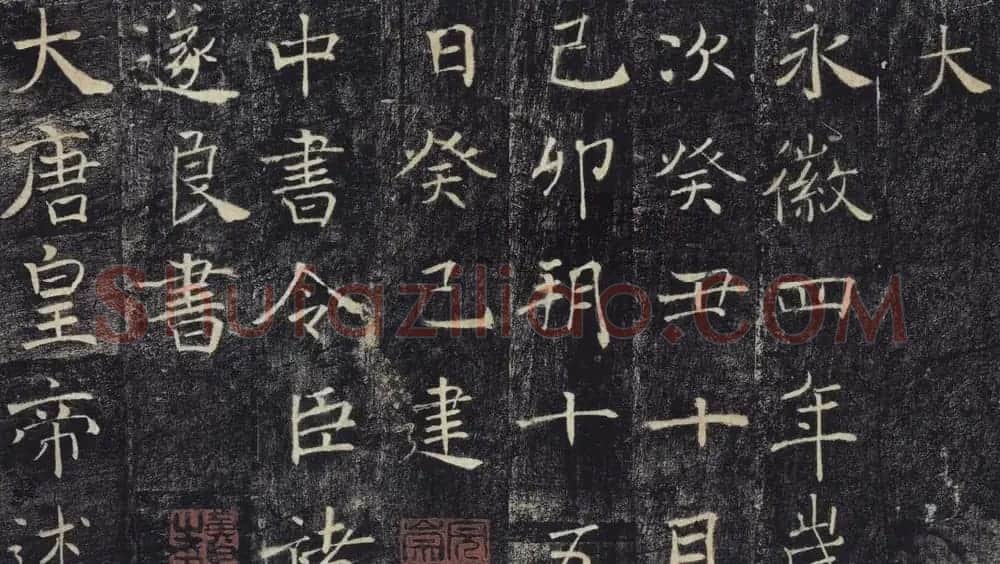 大
永徽四年歲
次癸丑十月
己卯朔十五
日癸巳建
中書令臣褚
遂良書
大唐皇帝述
Shufaziliao.COM